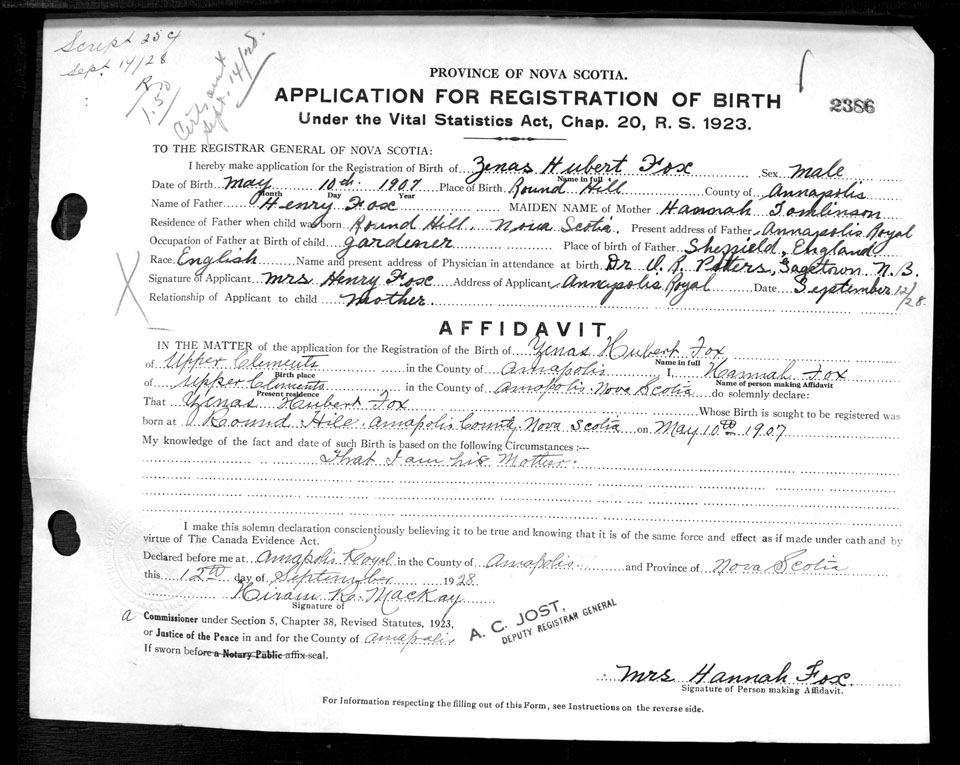 Script 25¢
Sept. 14/28
Certs sent
Sept. 14/28.
1.50
PROVINCE OF NOVA SCOTIA.
APPLICATION FOR REGISTRATION OF BIRTH
2386
Under the Vital Statistics Act, Chap. 20, R. S. 1923.
TO THE REGISTRAR GENERAL OF NOVA SCOTIA:
I hereby make application for the Registration of Birth of Zenas Hubert Fox Sex male
Name in full
Date of Birth May 10th 1907 Place of Birth Round Hill County of Annapolis
Month Day Year
Name of Father Henry Fox MAIDEN NAME of Mother Hannah Tomlinson
Residence of Father when child was born Round Hill, Nova Scotia. Present address of Father Annapolis Royal
Occupation of Father at Birth of child gardiner Place of birth of Father Sheffield, England
Race English Name and present address of Physician in attendance at birth Dr. Peters, Gagetown N. B.
Signature of Applicant Mrs Henry Fox Address of Applicant Annapolis Royal Date September 12/28.
Relationship of Applicant to child Mother
AFFIDAVIT
IN THE MATTER of the application for the Registration of the Birth of Zenas Hubert Fox
Name in full
of Upper Clements in the County of Annapolis I, Hannah Fox
Birth place Name of person making Affidavit
of Upper Clements in the County of Annapolis Nova Scotia do solemnly declare:
Present residence
That Zenas Hubert Fox Whose Birth is sought to be registered was
born at Round Hill Annapolis County Nova Scotia on May 10th 1907
My knowledge of the fact and date of such Birth is based on the following Circumstances:—
That I am his Mother.
I make this solemn declaration conscientiously believing it to be true and knowing that it is of the same force and effect as if made under oath and by
virtue of The Canada Evidence Act.
Declared before me at Annapolis Royal in the County of Annapolis and Province of Nova Scotia
this 12th day of September 1928
Hiram K. MacKay
Signature of
a Commissioner under Section 5, Chapter 38, Revised Statutes, 1923,
or Justice of the Peace in and for the County of Annapolis
If sworn before a Notary Public affix seal.
A. C. JOST,
DEPUTY REGISTRAR GENERAL
Mrs Hannah Fox.
Signature of Person making Affidavit.
For Information respecting the filling out of this Form, see Instructions on the reverse side.